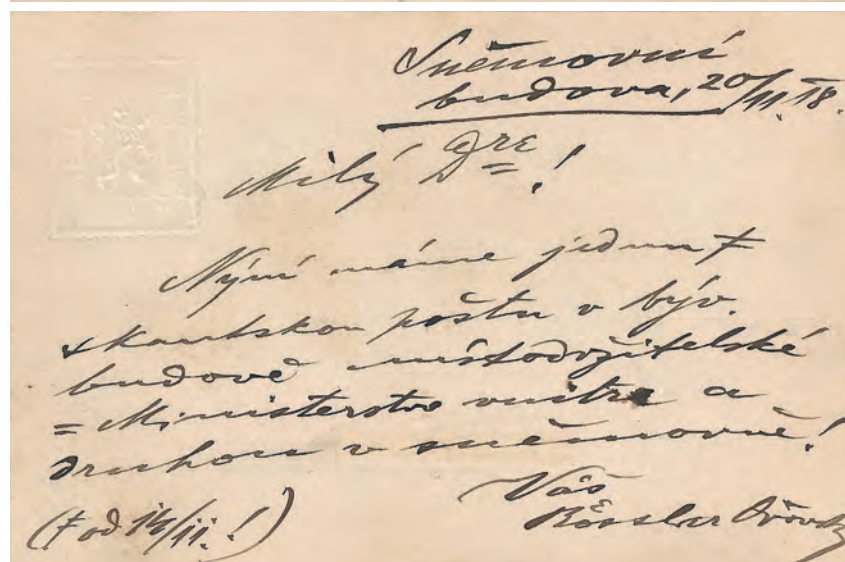 Sněmovní
budova, 20/11. 18.
Milý Dre!
Nyní máme jednu ≠
skautskou poštu v býv.
budově místodržitelské
= Ministerstvo vnitra a
druhou v sněmovně!
Váš
Rössler Ořovský
(≠ od 14/11.!)